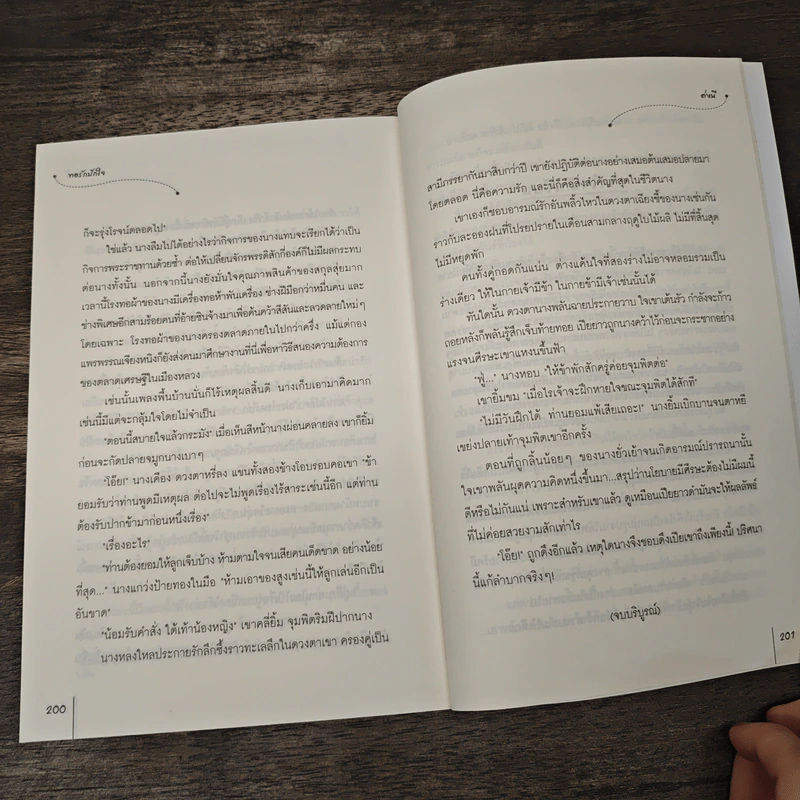 ทอรักมัดใจ
ก็จะรุ่งโรจน์ตลอดไป"
ใช่แล้ว นางลืมไปได้อย่างไรว่ากิจการของนางแทบจะเรียกได้ว่าเป็น
กิจการพระราชทานด้วยซ้ำ ต่อให้เปลี่ยนจักรพรรดิสักกี่องค์ก็ไม่มีผลกระทบ
ต่อนางทั้งนั้น นอกจากนี้นางยังมั่นใจคุณภาพสินค้าของสกุลสุ่ยมาก
เวลานี้โรงทอผ้าของนางมีเครื่องทอห้าพันเครื่อง ช่างฝีมือกว่าหมื่นคน และ
ช่างพิเศษอีกสามร้อยคนที่อ้ายซินจ้างมาเพื่อค้นคว้าสีสันและลวดลายใหม่ๆ
โดยเฉพาะ โรงทอผ้าของนางครองตลาดภายในไปกว่าครึ่ง แม้แต่กอง
แพรพรรณเจียงหนิงก็ยังส่งคนมาศึกษางานที่นี่เพื่อหาวิธีสนองความต้องการ
ของตลาดเศรษฐีในเมืองหลวง
เช่นนั้นเพลงพื้นบ้านนั่นก็ไร้เหตุผลสิ้นดี นางเก็บเอามาคิดมาก
เช่นนี้มีแต่จะกลุ้มใจโดยไม่จำเป็น
"ตอนนี้สบายใจแล้วกระมัง" เมื่อเห็นสีหน้านางผ่อนคลายลง เขาก็ยิ้ม
ก่อนจะกัดปลายจมูกนางเบาๆ
"โอ๊ย!" นางเคือง ดวงตาหรี่ลง แขนทั้งสองข้างโอบรอบคอเขา "ข้า
ยอมรับว่าท่านพูดมีเหตุผล ต่อไปจะไม่พูดเรื่องไร้สาระเช่นนี้อีก แต่ท่าน
ต้องรับปากข้ามาก่อนหนึ่งเรื่อง"
"เรื่องอะไร"
"ท่านต้องยอมให้ลูกเจ็บบ้าง ห้ามตามใจจนเสียคนเด็ดขาด อย่างน้อย
ที่สุด..." นางแกว่งป้ายทองในมือ "ห้ามเอาของสูงเช่นนี้ให้ลูกเล่นอีกเป็น
อันขาด"
"น้อมรับคำสั่ง ใต้เท้าน้องหญิง" เขาคลี่ยิ้ม จุมพิตริมฝีปากนาง
นางหลงใหลประกายรักลึกซึ้งราวทะเลลึกในดวงตาเขา ครองคู่เป็น
200
ต่างพี
สามีภรรยากันมาสิบกว่าปี เขายังปฏิบัติต่อนางอย่างเสมอต้นเสมอปลายมา
โดยตลอด นี่คือความรัก และนี่ก็คือสิ่งสำคัญที่สุดในชีวิตนาง
เขาเองก็ชอบอารมณ์รักอันพลิ้วไหวในดวงตาเฉียงชี้ของนางเช่นกัน
ราวกับละอองฝนที่โปรยปรายในเดือนสามกลางฤดูใบไม้ผลิ ไม่มีที่สิ้นสุด
ไม่มีหยุดพัก
คนทั้งคู่กอดกันแน่น ต่างแค้นใจที่สองร่างไม่อาจหลอมรวมเป็น
ร่างเดียว ให้ในกายเจ้ามีข้า ในกายข้ามีเจ้าเช่นนั้นได้
ทันใดนั้น ดวงตานางพลันฉายประกายวาบ ใจเขาเต้นรัว กำลังจะก้าว
ถอยหลังก็พลันรู้สึกเจ็บท้ายทอย เปียยาวถูกนางคว้าไว้ก่อนจะกระชากอย่าง
แรงจนศีรษะเขาแหงนขึ้นฟ้า
"ฟู่..." นางหอบ "ให้ข้าพักสักครู่ค่อยจุมพิตต่อ"
เขายิ้มขม "เมื่อไรเจ้าจะฝึกหายใจขณะจุมพิตได้สักที"
"ไม่มีวันฝึกได้ ท่านยอมแพ้เสียเถอะ!" นางยิ้มเบิกบานจนตาหยี
เขย่งปลายเท้าจุมพิตเขาอีกครั้ง
ตอนที่ถูกลิ้นน้อยๆ ของนางยั่วเย้าจนเกิดอารมณ์ปรารถนานั้น
ใจเขาพลันผุดความคิดหนึ่งขึ้นมา...สรุปว่านโยบายมีศีรษะต้องไม่มีผมนี้
ดีหรือไม่กันแน่ เพราะสำหรับเขาแล้ว ดูเหมือนเปียยาวดำมันจะให้ผลลัพธ์
ที่ไม่ค่อยสวยงามสักเท่าไร
"โอ๊ย!" ถูกดึงอีกแล้ว เหตุใดนางจึงชอบดึงเปียเขาถึงเพียงนี้! ปริศนา
นี้แก้ลำบากจริงๆ!
(จบบริบูรณ์)
201